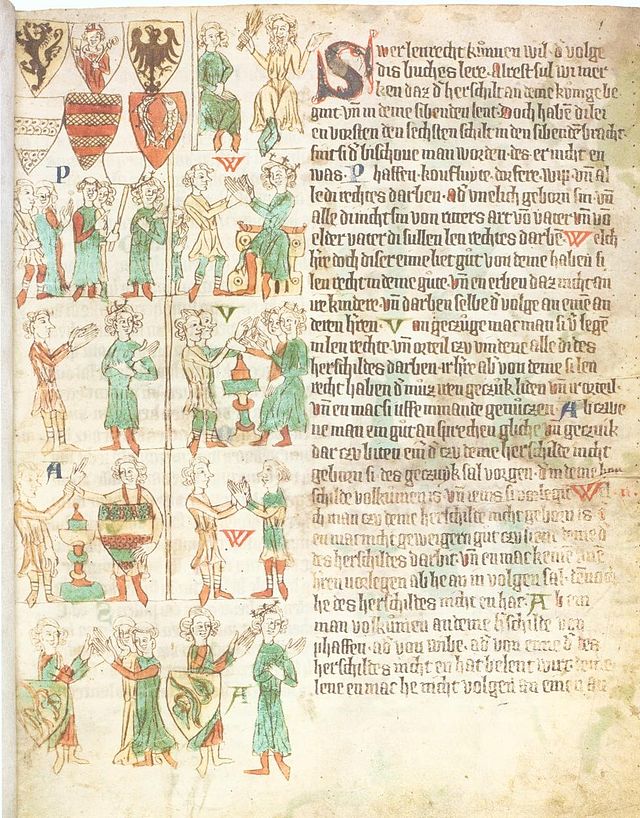 1
Swer lenrecht kunnen wil d' volge
dis buches lere. Alrest sul wi mer
ken daz d' herschilt an deme kunige be
gint. vn in deme sibenden lent. Doch habē di lei
en vorsten den sechsten schilt in den sibende bracht
sint si d' bischoue man worden. des er nicht en
was. Phaffen. koufluyte. dorfere. wip. vn al
le di rechtes darben. ad' vnelich geborn sin. vn
alle di nicht sin von ritters art. von vater vn vo
elder vater di sullen len rechtes darbē. Welch
h're doch diser eime liet gut. von deme haben si
len recht in deme gute. vn en erben daz nicht an
ire kindere. vn darben selbe d' volge an eime an
deren h'ren. Van gezuge mac man si v'legē
in len rechte. vn orteil czu vindene alle di des
herschildes darben. ir h're ab' von deme si len
recht haben d' muz iren geczuk liden vn ir orteil.
vn en mac si uffe nimande genutzen. Ab czwe
ne man ein gut an sprechen gliche vn geczuk
dar czu biten ein' d' czu deme herschilde nicht
geborn si. des geczuk sal vorgen. d' in deme her
schilde volkumen is vn ienis si vorlegit. Wel
ch man czu deme herschilde nicht geborn is
en mac nicht geweigern gut czu liene deme d'
des herschildes darbit. vn en mac keinē
hren vorlegen ab he an in volgen sal
he des herschildes nicht en hat. Ab ein
man volkumen an deme h'schilde von
phaffen. ad' von wibe. ad' von eime d' des
herschildes nicht en hat belent wirt
lene en mac he nicht volgen an einen an
P
W
V
A
W
A